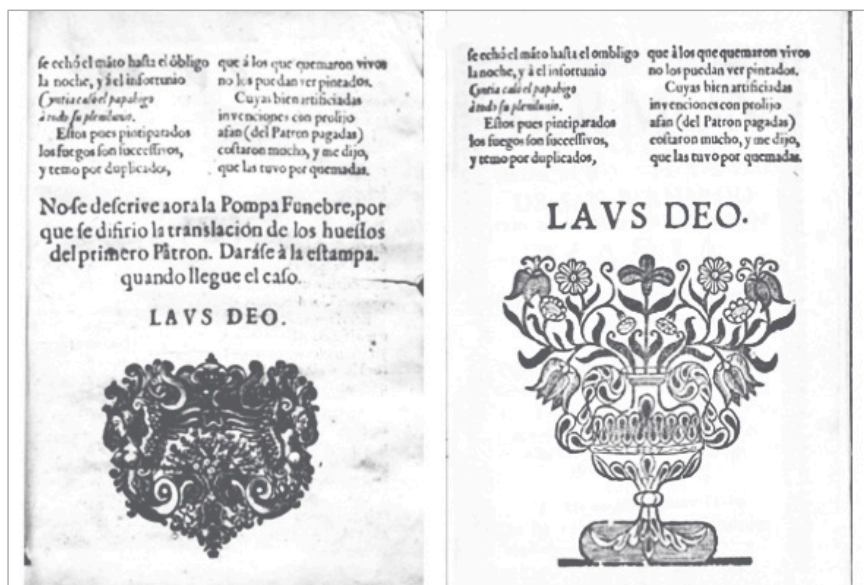 se echó el mãto hasta el òbligo
la noche, y à el infortunio
Cyntia caló el papahigo
à todo su plenilunio.
Estos pues pintiparados
los fuegos son successivos,
y temo por duplicados,
que á los que quemaron vivos
no los puedan ver pintados.
Cuyas bien artificiadas
invenciones con prolijo
afan (del Patron pagadas)
costaron mucho, y me dijo,
que las tuvo por quemadas.
No se descrive aora la Pompa Funebre, por
que se difirio la translación de los huessos
del primero Pàtron. Daráse à la estampa.
quando llegue el caso.
LAVS DEO.
se echó el mãto hasta el ombligo
la noche, y à el infortunio
Cyntia caló el papahigo
à todo su plenilunio.
Estos pues pintiparados
los fuegos son successivos,
y temo por duplicados,
que à los qne quemaron vivos
no los puedan ver pintados.
Cuyas bien artificiadas
invenciones con prolijo
afan (del Patron pagadas)
costaron mucho, y me dijo,
que las tuvo por quemadas.
LAVS DEO.